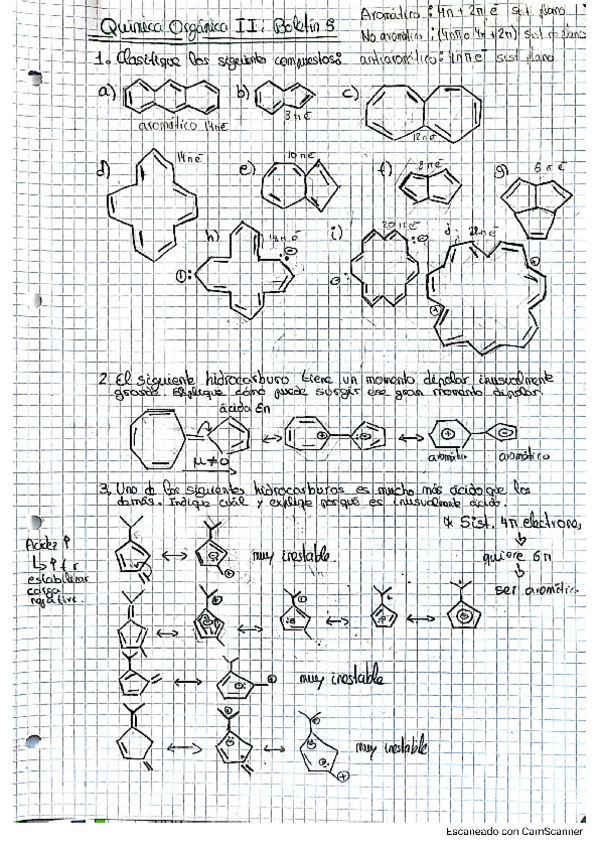 Química Orgánica II. Boletín 5
Aromático : 4n + 2π e⁻ sist. plano
No aromático : (4nπ o 4n + 2π) sist no plano
antiaromático : 4nπ e⁻ sist plano
1. Clasifique los siguientes compuestos:
a) b) c)
aromático 14πe⁻
12πe⁻
d) 14πe⁻ e) 10πe⁻ f) 8πe⁻ g)
h) i) 20πe⁻
2. El siguiente hidrocarburo tiene un momento dipolar inusualmente
grande. Explique cómo puede surgir ese gran momento dipolar.
μ≠0
aromático aromático
3. Uno de los siguientes hidrocarburos es mucho más ácido que los
demás. Indique cuál y explique porqué es inusualmente ácido.
* Sist. 4π electrons,
quiere 6π
ser aromático.
Acidez ↑
estabilizar
carga
negativa.
muy inestable.
muy inestable
muy inestable
Escaneado con CamScanner